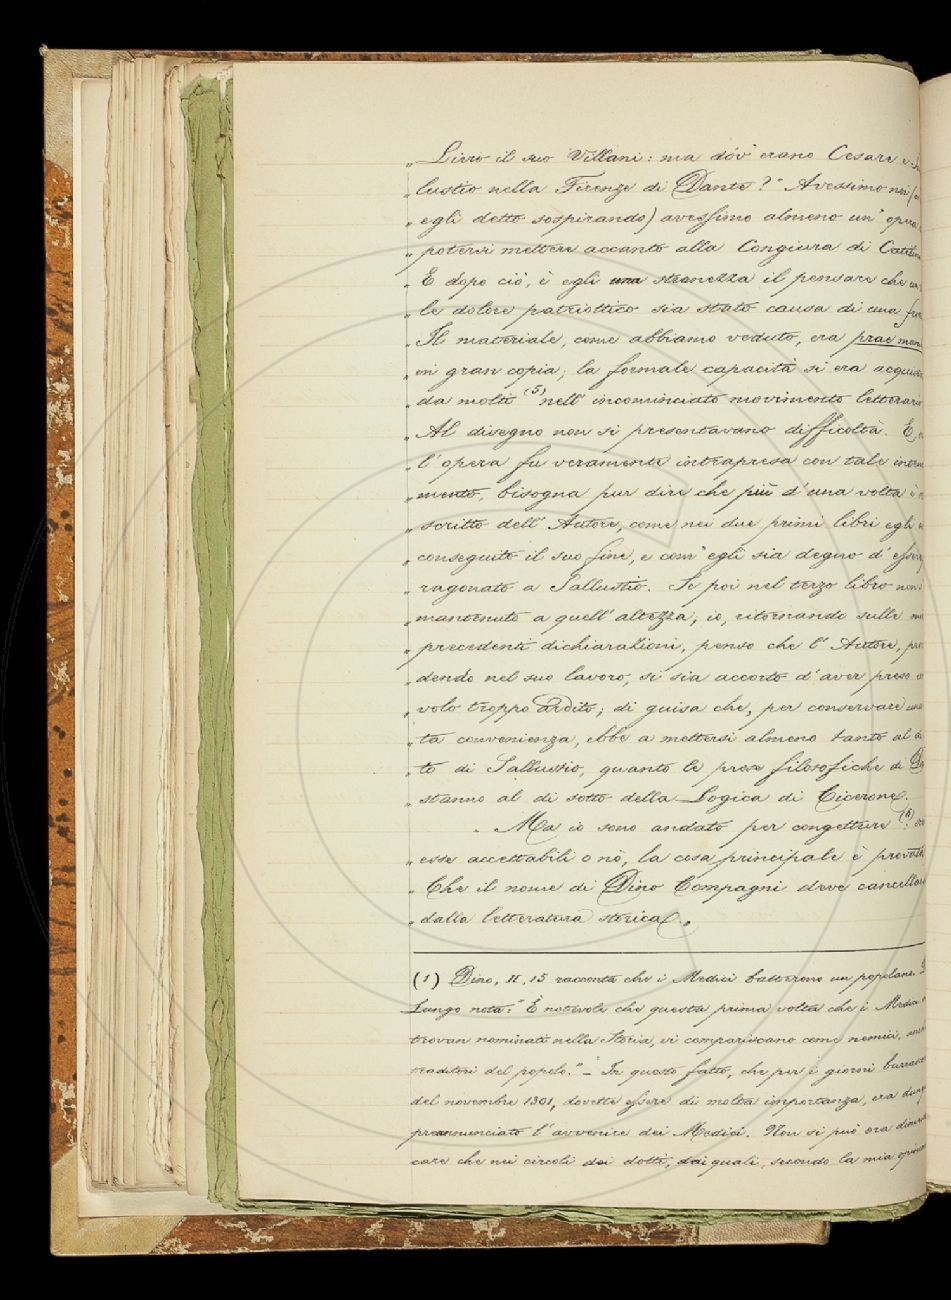 „ Livio il suo Villani: ma dov' erano Cesare e
„ lustio nella Firenze di Dante?" Avessimo noi
„ egli detto sospirando) avessimo almeno un' opera
„ potersi mettere accanto alla Congiura di
„ E dopo ciò, è egli una stranezza il pensare che
„ le dolore patriottico sia stato causa di una
„ Il materiale, come abbiamo veduto, era prae
„ in gran copia; la formale capacità si era
„ da molti (5) nell' incominciato movimento
„ Al disegno non si presentavano difficoltà. E
„ l'opera fu veramente intrapresa con tale
„ mento, bisogna pur dire che più d'una volta è
„ scritto dell' Autore, come nei due primi libri egli
„ conseguito il suo fine, e com' egli sia degno d'
„ ragonato a Sallustio. Se poi nel terzo libro non
„ mantenuto a quell' altezza, io, ritornando sulle
„ precedenti dichiarazioni, penso che l' Autore,
„ dendo nel suo lavoro, si sia accorto d'aver preso
„ volo troppo ardito; di guisa che, per conservare
„ ta convenienza, ebbe a mettersi almeno tanto al
„ to di Sallustio, quanto le prose filosofiche di
„ stanno al di sotto della Logica di Cicerone.
„ Ma io sono andato per congetture (6):
„ esse accettabili o nò, la cosa principale è
„ Che il nome di Dino Compagni deve
„ dalla letteratura storica.„
(1) Dino, II, 15 racconta che i Medici batterono un popolano.
Lungo nota: "È notevole che questa prima volta che i
trovan nominati nella Storia, vi compariscano come nemici,
traditori del popolo." – In questo fatto, che per i giorni
del novembre 1301, dovette essere di molta importanza, era
preannunciato l'avvenire dei Medici. Non si può ora
care che nei circoli dei dotti, dai quali, secondo la mia